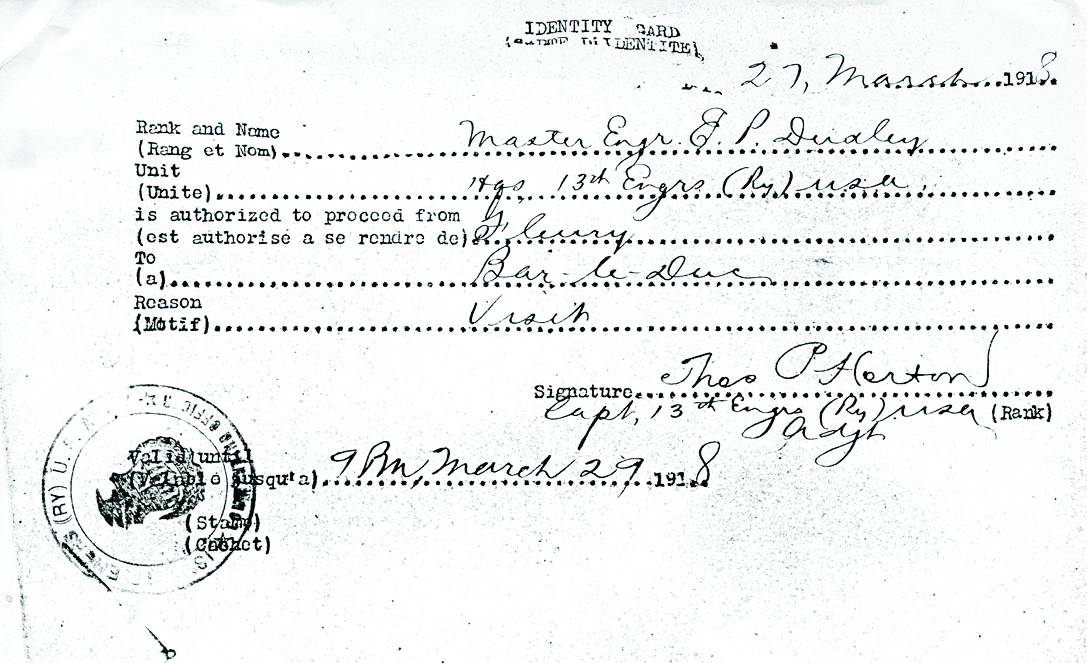 IDENTITY CARD
(CARTE D'IDENTITE)
27, March 1918.
Rank and Name
(Rang et Nom) Master Engr. F. P. Dudley
Unit
(Unite) Hqs. 13th Engrs (Ry) USA.
is authorized to proceed from
(est authorise a se rendre de) Fleury
To
(a) Bar-le-Duc
Reason
(Motif) Visit
Signature Thos P Horton
Capt, 13th Engrs (Ry) USA (Rank)
Adjt
Valid until
(Valable jusqu'a) 9 PM, March 29 1918
(Stamp)
(Cachet)
ENGRS (RY) U. S. A.